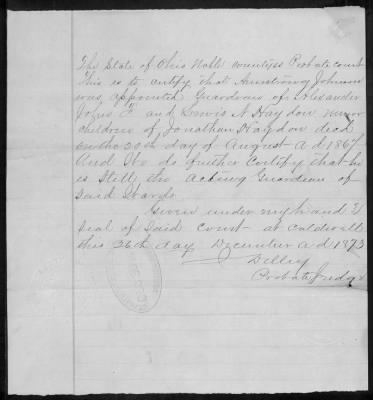 The State of Ohio Noble County ss Probate court
This is to certify that Armstrong Johnson
was appointed Guardeans of Alexander
F and Lewis A Haydon minor
children of Jonathan Haydon decd
on the 20th day of August A d 1867
And I do further Certify that he
is Still the Acting Guardean of
Said Wards
Given under my hand &
Seal of Said Court at Caldwell
this 26th day December A d 1873
Dilley
Probate Judge